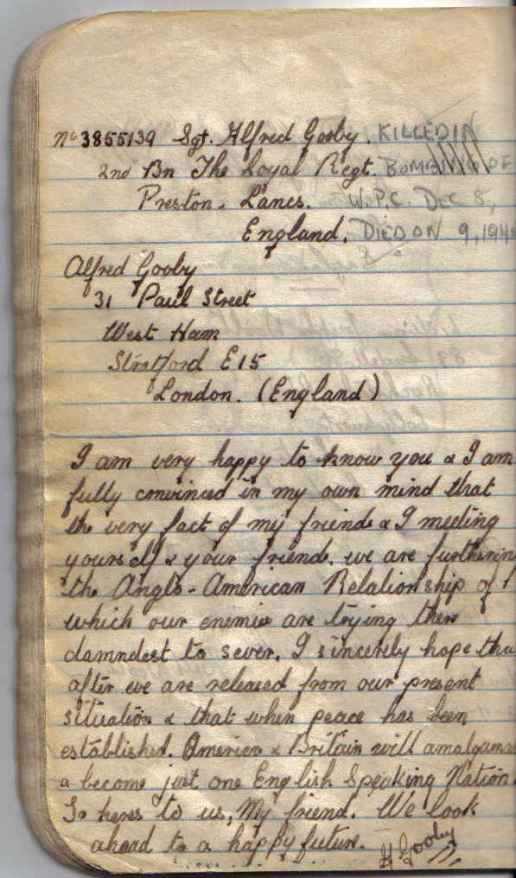 No 3855139 Sgt. Alfred Gooby. KILLED IN
2nd Bn The Loyal Regt. BOMBING OF
Preston. Lancs. W.P.C. DEC 8,
England. DIED ON 9, 194
Alfred Gooby
31 Paul Street
West Ham
Stratford E15
London. (England)
I am very happy to know you & I am
fully convinced in my own mind that
the very fact of my friends & I meeting
yourself & your friends. we are furthering
the Anglo-American Relationship of
which our enemies are trying their
damndest to sever. I sincerely hope tha
after we are released from our present
situation & that when peace has been
established. America & Britain will amalgama
& become just one English Speaking Nation.
So heres to us, My friend. We look
ahead to a happy future. A Gooby